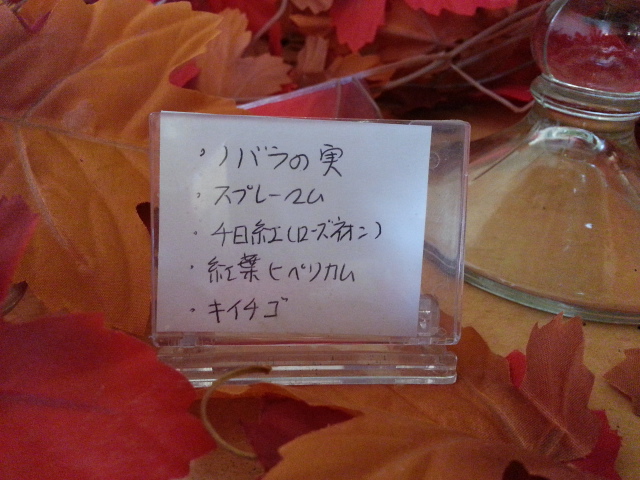 ・ノバラの実
・スプレーマム
・千日紅(ローズネオン)
・紅葉ヒペリカム
・キイチゴ